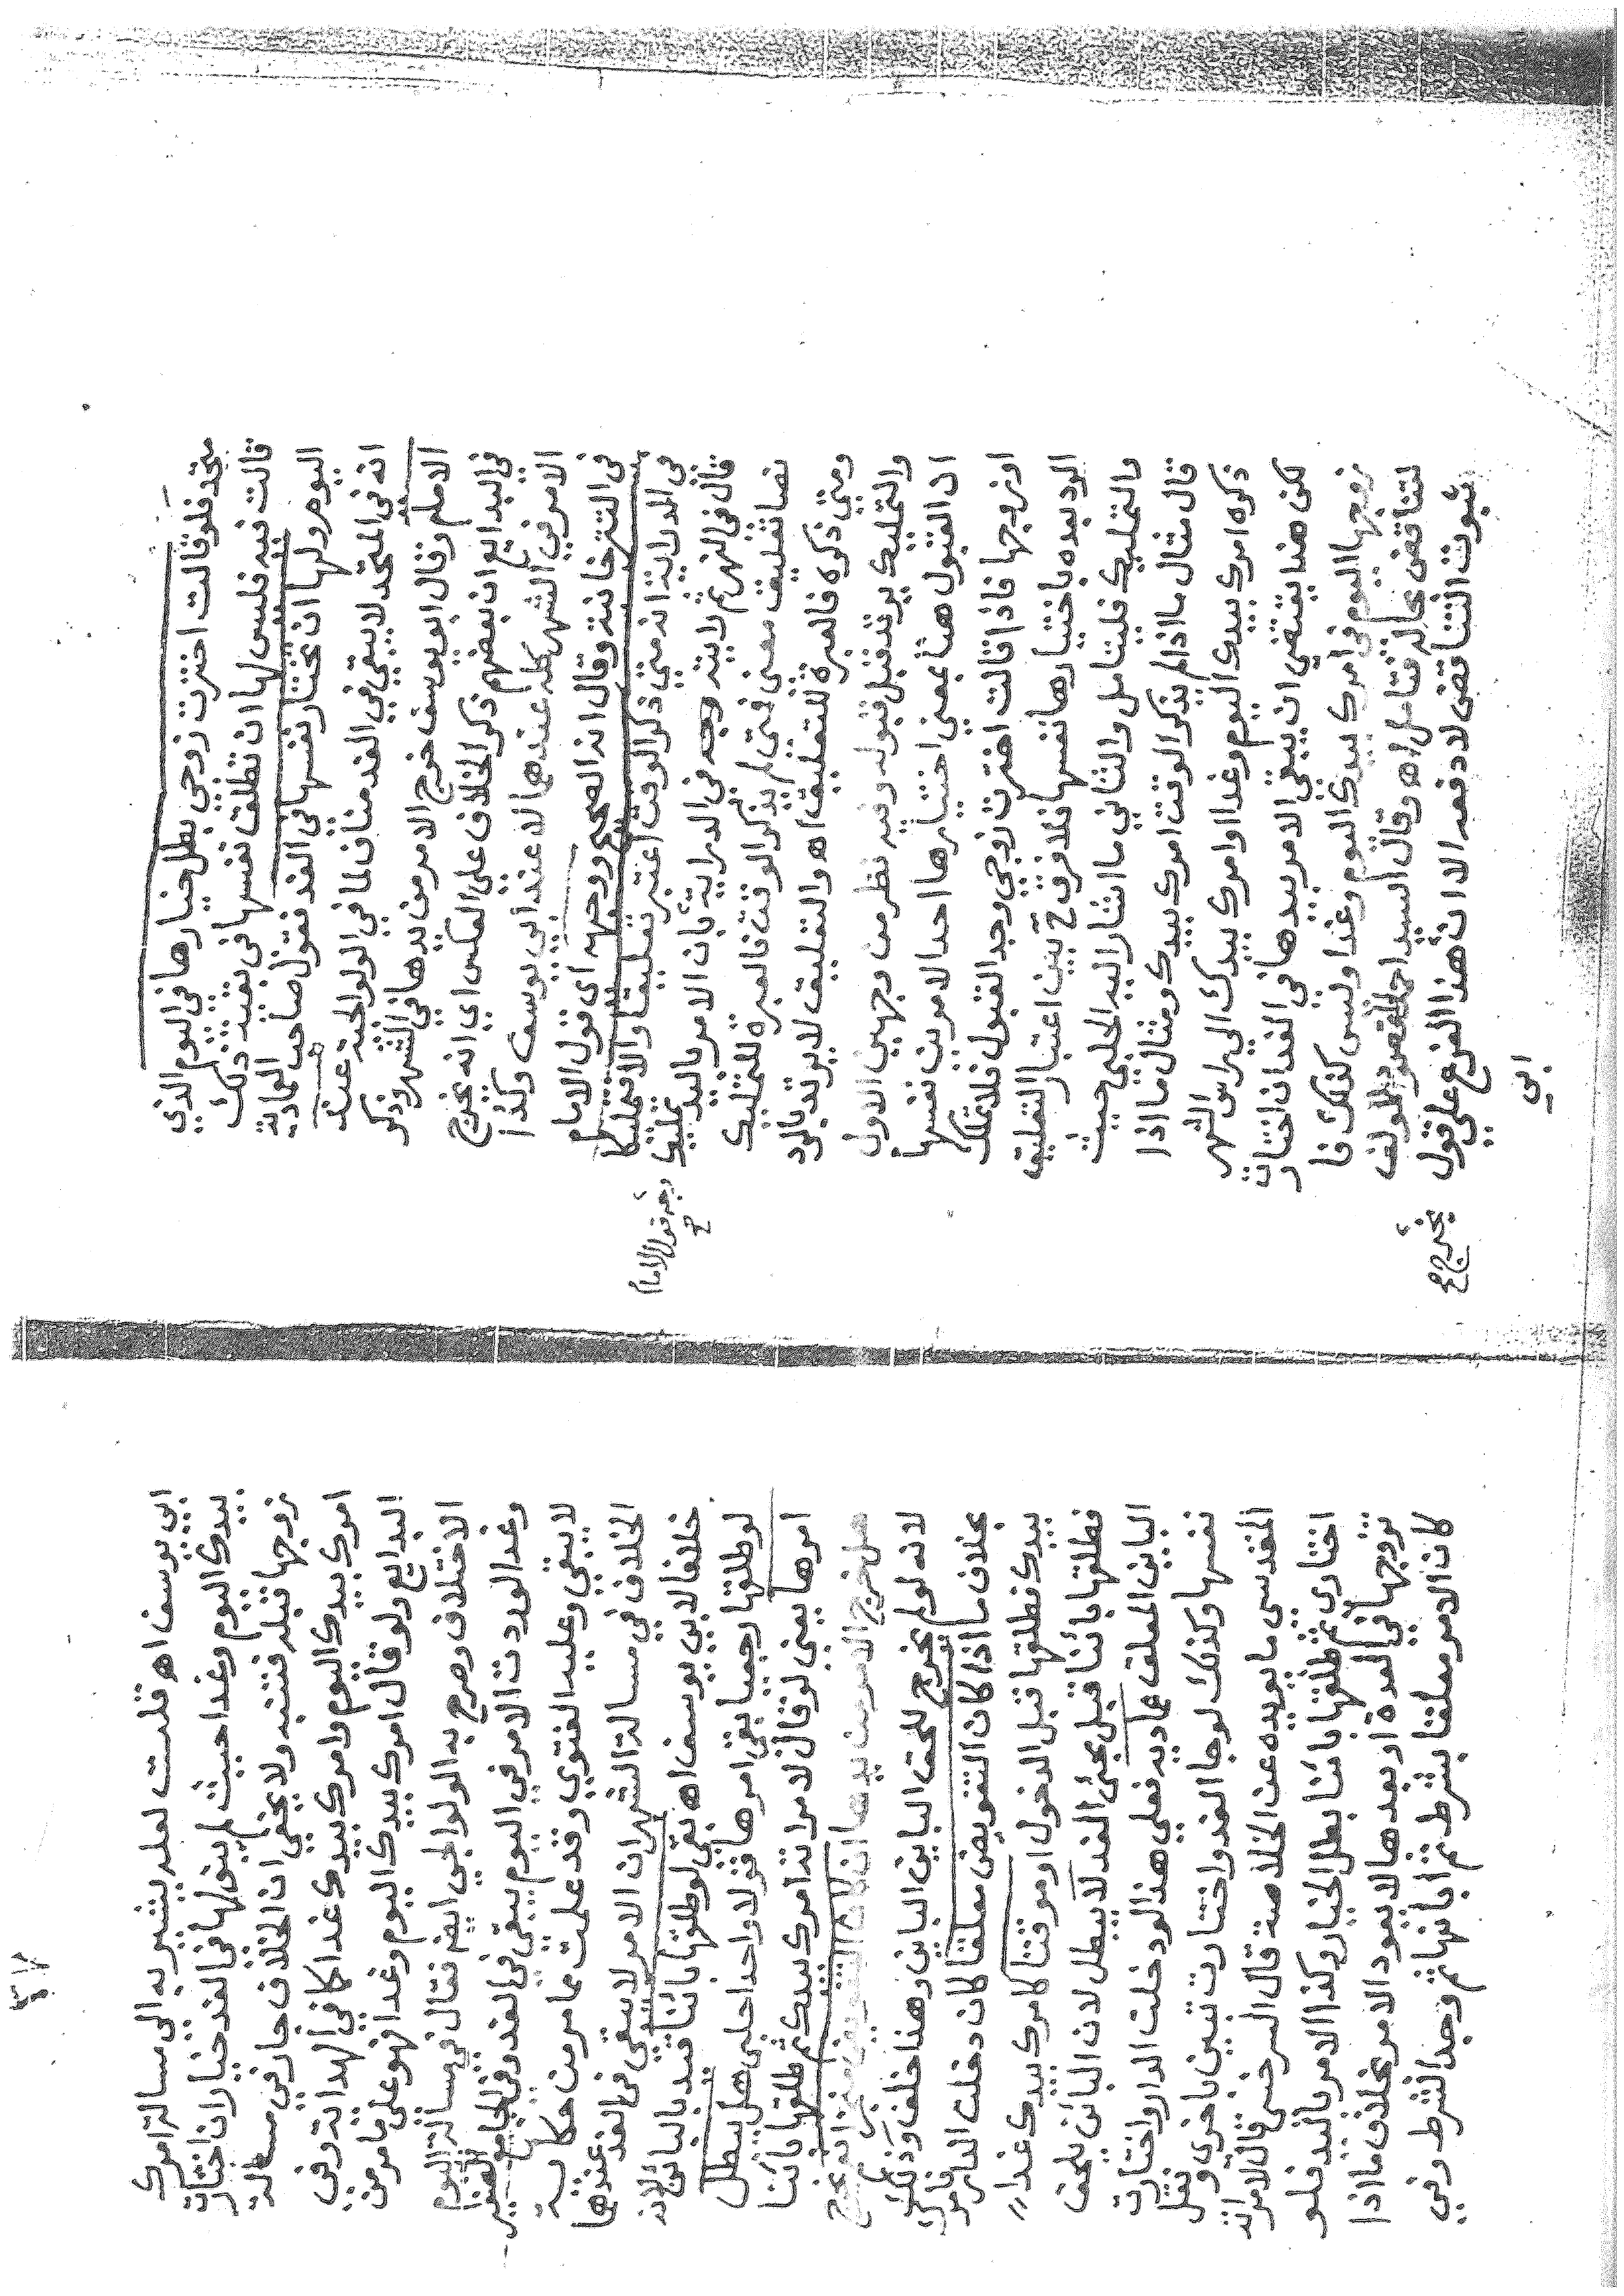 متحد فلو قالت اخترت زوجي بطل خيارها في اليوم الذي
قالت فيه فليس لها ان تطلق نفسها في بقية ذلك
اليوم ولها ان تختار نفسها في الغد فقول صاحب العادية
انه في المتحد لا يبقي في الغد مناف لما في الولوالجية عند
الامام وقال ابو يوسف خرج الامر من يدها في الشهر وذكر
في البدايع ان بعضهم ذكر الخلاف علي العكس اي انه يخرج
الامر في الشهر كله عندهما لا عند ابي يوسف وكذا
في التترخانية وقال انه الصحيح ووجهه اي قول الامام
في الدراية انه متي ذكر الوقت اعتبر تعليقا والا تمليكا
قال في النهر ثم رايته وجه في الدراية بان الامر باليد تمليك
نصا تعليق معني فمتي لم يذكر الوقت فالعبرة للتمليك
ومتي ذكره فالعبرة للتعليق اه والتعليق لا يرتد بالرد
والتمليك يرتد قبل قبوله وفيه نظر من وجهين الاول
ان القبول هنا بمعني اختيارها احد الامرين نفسها
او زوجها فاذا قالت اخترت زوجي وجد القبول فلا تملك
الرد بعده باختيارها نفسها فلا فرق ح بين اعتبار التعليق
والتمليك فليتامل والثاني ما اشار اليه الحلبي حيث
قال مثال ما اذا لم يذكر الوقت امرك بيدك ومثال ما اذا
ذكره امرك بيدك اليوم وغدا او امرك بيدك الي راس الشهر
لكن هذا يقتضي ان يبقي الامر بيدها في الغد ان اختارت
زوجها اليوم في امرك بيدك اليوم وغدا وليس كذلك فا
لتناقض بحاله فتامل اه وقال السيد احمد المولف
ثبوت التناقض لا دفعه الا ان هذا الفرع علي قول
يخرج ع
ابي
ابي يوسف اه قلت لعله يشير به الى مسالة امرك
بيدك اليوم وغدا حيث لم يبق لها في الغد خيار ان اختارت
زوجها قبله فتنبه ولا يخفي ان الخلاف جار في مسالة
امرك بيدك اليوم وامرك بيدك غدا كما في الهداية وفي
البدايع ولو قال امرك بيدك اليوم وغدا فهو علي ما مر من
الاختلاف وصرح به الولوالجي ايضا فقال في مسالة اليوم
وغد الو ردت الامر في اليوم يبقي في الغد وفي الجامع الصغير
لا يبقي وعليه الفتوي وقد علمت مما مر من حكاية
الخلاف في مسالة الشهر ان الامر لا يبقي في الغد عندهما
خلافا لابي يوسف اه بقي لو طلقها بائنا قيد بالبائن لانه
لو طلقها رجعيا بقي امرها قولا واحدا حلبي هل يبطل
امرها يعني لو قال لامراته امرك بيدك ثم طلقها بائنا
هل خرج الامر من يدها ان كان التفويض منجزا يخرج
لانه لو لم يخرج للحق الباين الباين وهذا خلف وذلك
بخلاف ما اذا كان التفويض معلقا كان دخلت الدار فامرك
بيدك فطلقها قبل الدخول او موقتا كامرك بيدك غدا
فطلقها بائنا قبل مجئ الغد لا يبطل لان البائن يلحق
الباين المعلق عماديه فعلي هذا لو دخلت الدار واختارت
نفسها وكذلك لو جا الغد واختارت تبين باخري ونقل
المقدسي ما يويده عن الخلاصة قال السرخسي قال لامراته
اختاري ثم طلقها بائنا بطل الخيار وكذا الامر باليد فلو
تزوجها في العدة او بعدها لا يعود الامر بخلاف ما اذا
كان الامر معلقا بشرط ثم ابانها ثم وجد الشرط وفي